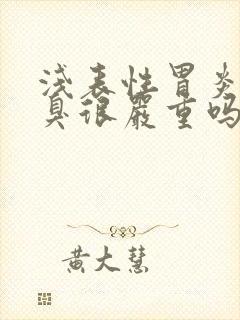 浅表性胃炎
臭很严重吗
黄大慧